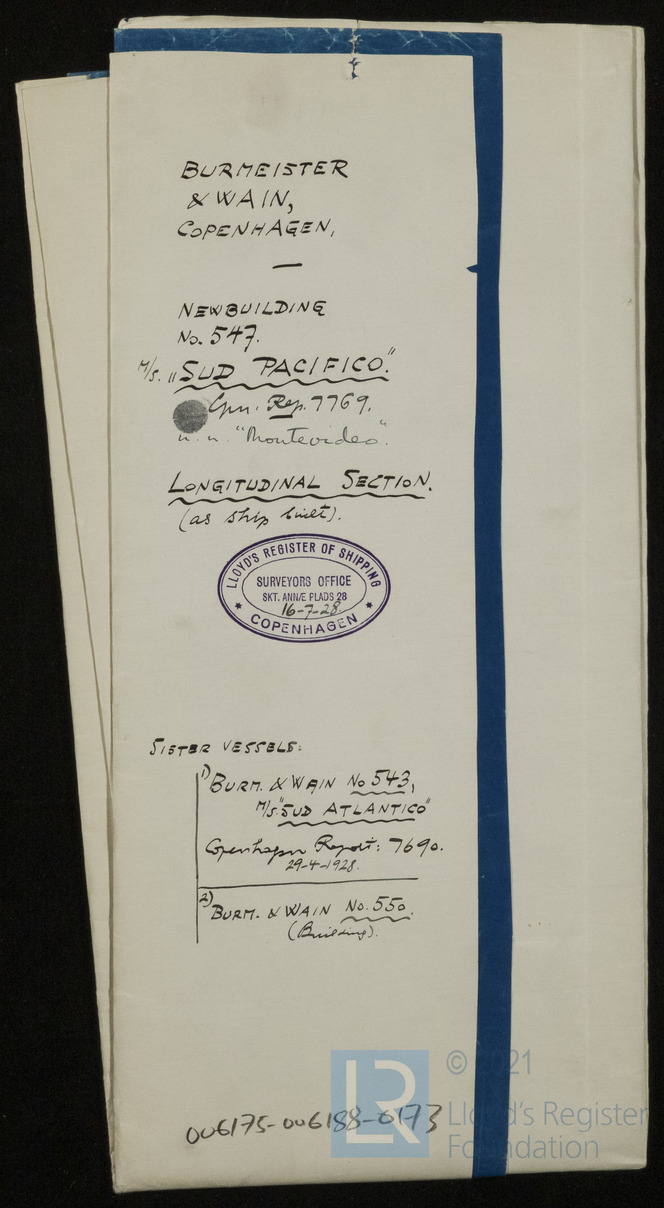 BURMEISTER
& WAIN,
COPENHAGEN,
—
NEWBUILDING
No. 547.
M/S. „SUD PACIFICO."
Cpn. Rep. 7769.
n. n. "Montevideo".
LONGITUDINAL SECTION.
(as ship built).
LLOYD'S REGISTER OF SHIPPING
SURVEYORS OFFICE
SKT. ANNÆ PLADS 28
16-7-28.
COPENHAGEN
SISTER VESSELS:
1) BURM. & WAIN No 543,
M/S. "SUD ATLANTICO"
Copenhagen Report: 7690.
29-4-1928.
2) BURM. & WAIN No. 550.
(Building).
006175-006188-0173
LR
© 2021
Lloyd's Register
Foundation